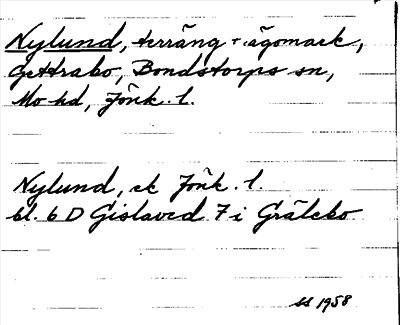 Nylund, terräng o. ägomark,
Gettrabo, Bondstorps sn,
Mo hd, Jönk. l.
Nylund, ek Jönk. l.
bl. 6 D Gislaved 7 i Grälebo
1958